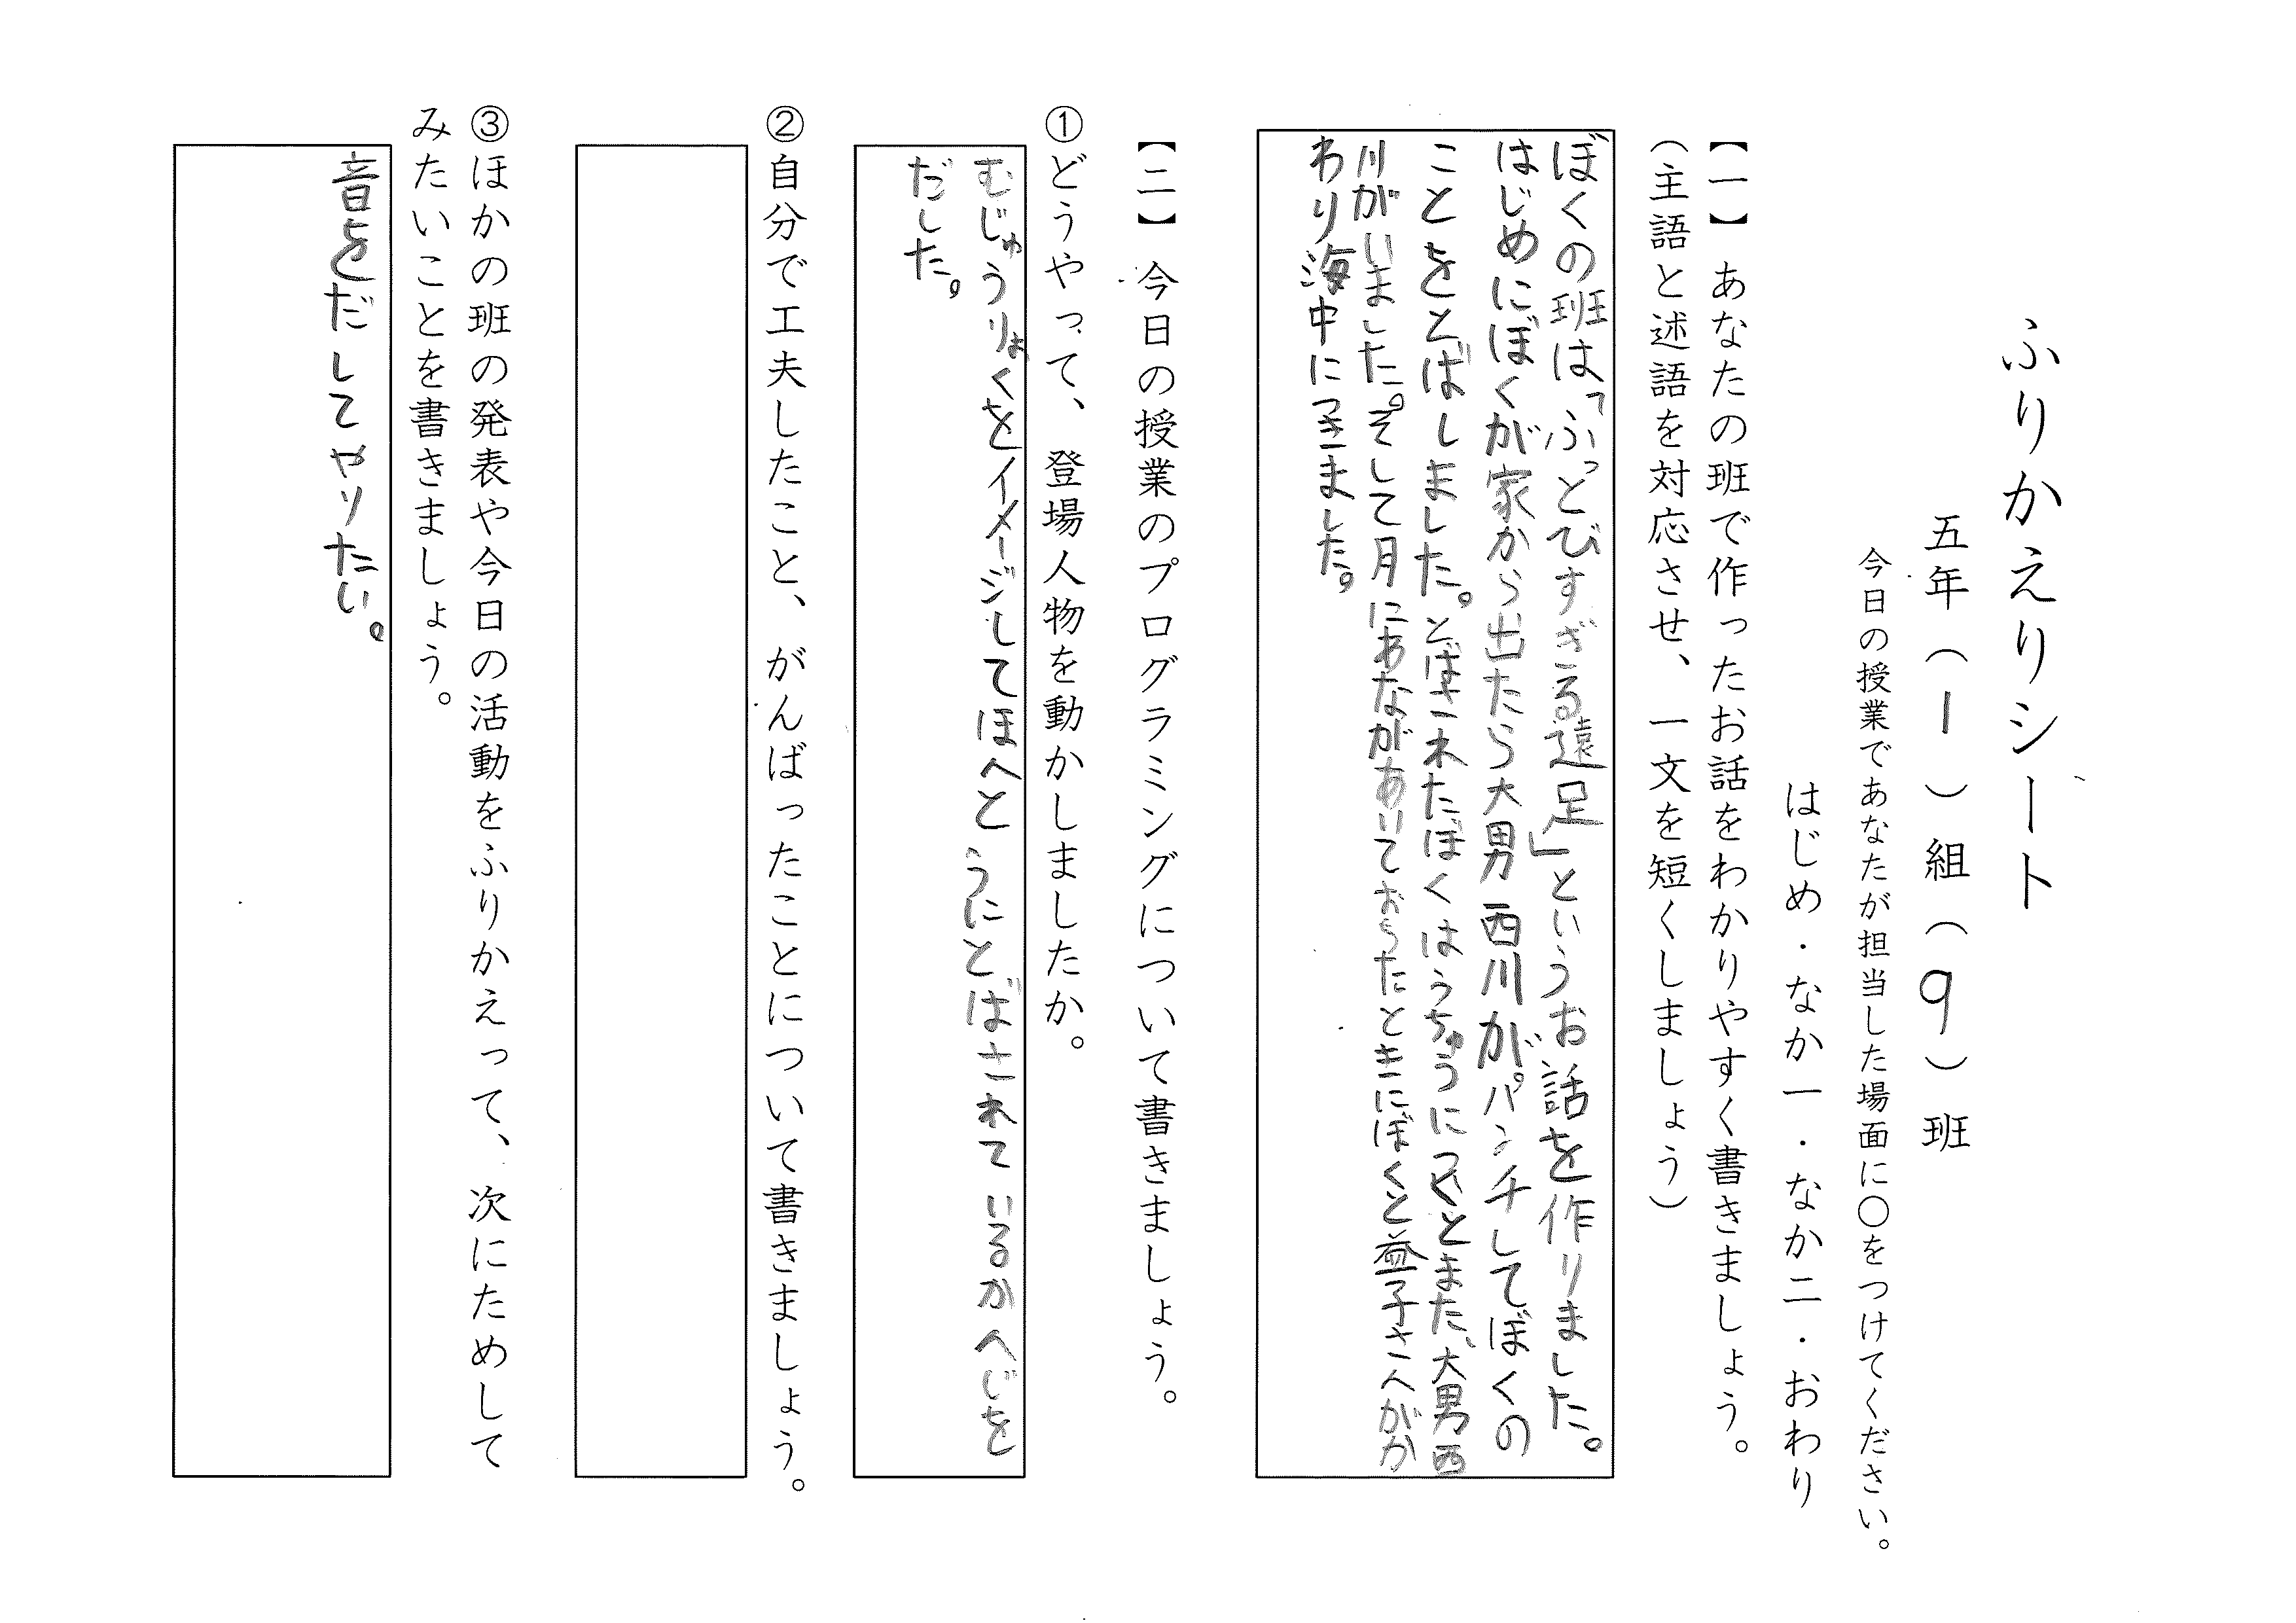 ふりかえりシート
五年（1）組（9）班
今日の授業であなたが担当した場面に〇をつけてください。
はじめ・なか一・なか二・おわり
【一】あなたの班で作ったお話をわかりやすく書きましょう。
（主語と述語を対応させ、一文を短くしましょう）
ぼくの班は「ふっとびすぎる遠足」というお話を作りました。
はじめにぼくが家から出たら大男西川がパンチしてぼくの
ことをとばしました。とばされたぼくはうちゅうにつくとまた、大男西
川がいました。そして月にあながありておちたときにぼくと益子さんがか
わり海中にきました。
【二】今日の授業のプログラミングについて書きましょう。
①どうやって、登場人物を動かしましたか。
むじゅうりょくをイメージしてほへとうにとばされているかへじを
だした。
②自分で工夫したこと、がんばったことについて書きましょう。
③ほかの班の発表や今日の活動をふりかえって、次にためして
みたいことを書きましょう。
音をだしてやりたい。